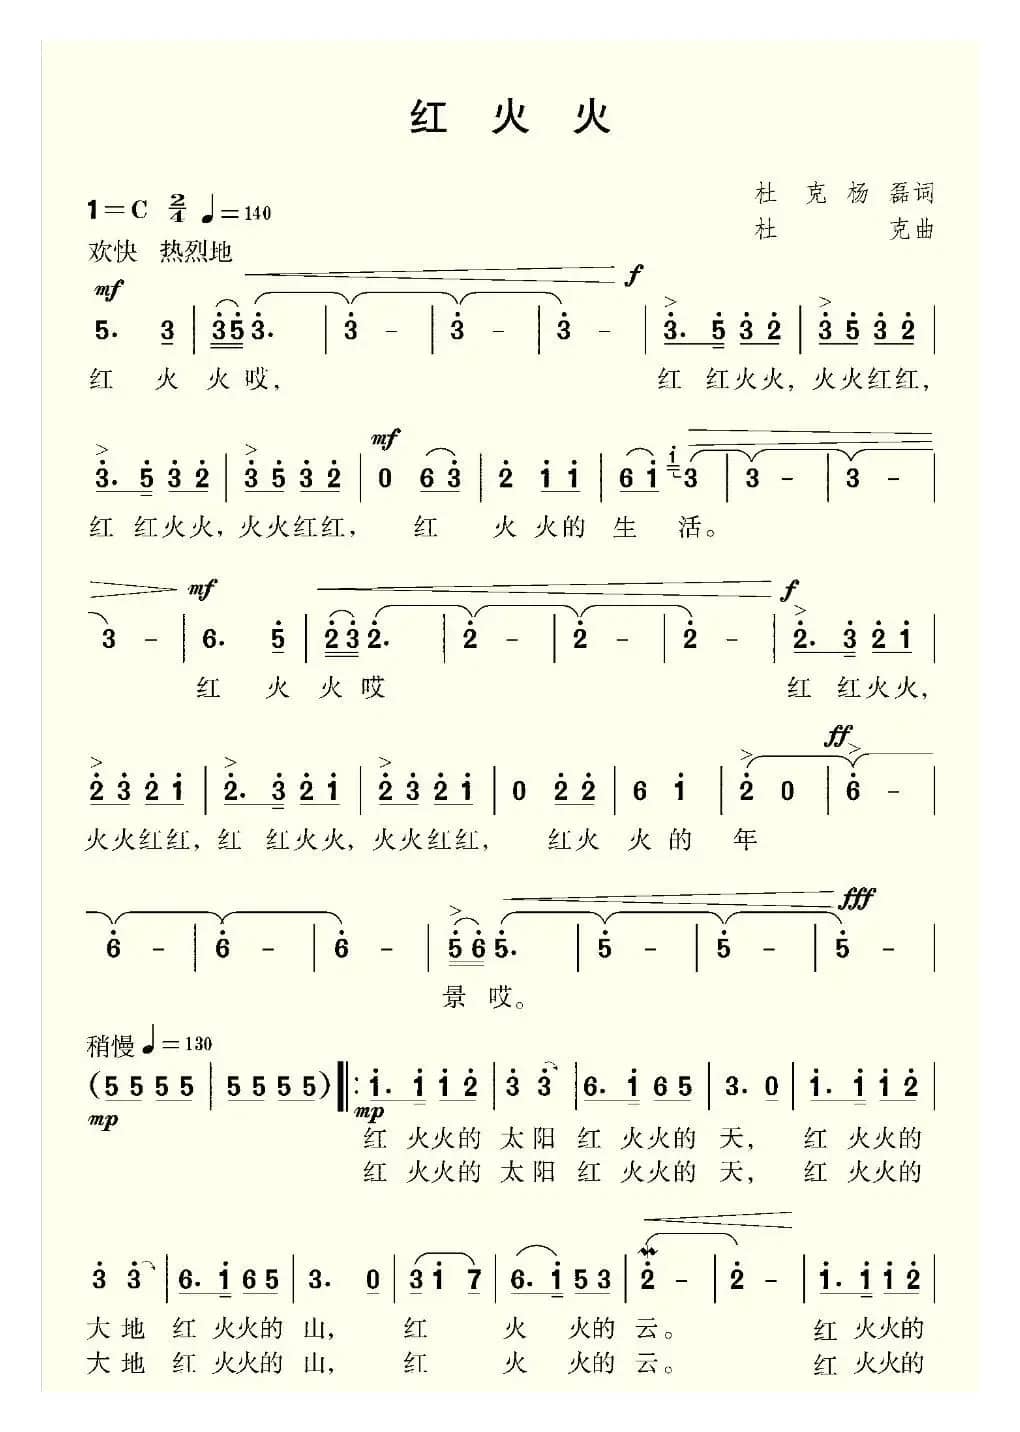 红 火 火
杜 克 杨 磊词
1=C 2/4 ♩=140
杜 克曲
欢快 热烈地
mf f
5. 3 | 35 3. | 3 - | 3 - | 3 - | 3. 5 3 2 | 3 5 3 2 |
红 火 火 哎， 红 红火火，火火红红，
mf
3. 5 3 2 | 3 5 3 2 | 0 6 3 | 2 1 1 | 6 1 1 3 | 3 - | 3 - |
红 红火火，火火红红， 红 火 火的 生 活。
mf f
3 - | 6. 5 | 2 3 2. | 2 - | 2 - | 2 - | 2. 3 2 1 |
红 火 火 哎 红 红火火，
ff
2 3 2 1 | 2. 3 2 1 | 2 3 2 1 | 0 2 2 | 6 1 | 2 0 | 6 - |
火火红红，红 红火火，火火红红， 红火 火 的 年
fff
6 - | 6 - | 6 - | 5 6 5. | 5 - | 5 - | 5 - |
景 哎。
稍慢 ♩=130
(5 5 5 5 | 5 5 5 5) ‖: 1. 1 1 2 | 3 3 | 6. 1 6 5 | 3. 0 | 1. 1 1 2 |
mp mp
红 火火的 太 阳 红 火火的 天， 红 火火的
红 火火的 太 阳 红 火火的 天， 红 火火的
3 3 | 6. 1 6 5 | 3. 0 | 3 1 7 | 6. 1 5 3 | 2 - | 2 - | 1. 1 1 2 |
大 地 红 火火的 山， 红 火 火的 云。 红 火火的
大 地 红 火火的 山， 红 火 火的 云。 红 火火的